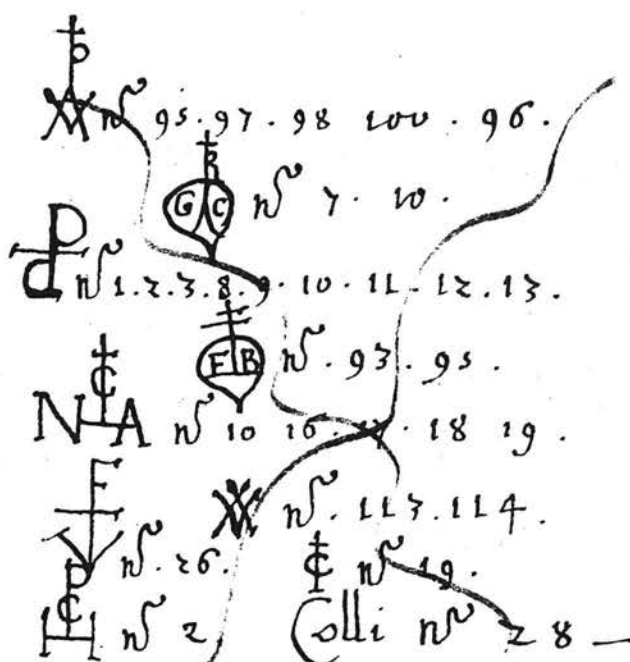 nº 95 · 97 · 98 100 · 96 ·
G C nº 7 · 10 ·
nº 1 · 2 · 3 · 8 · 9 · 10 · 11 · 12 · 13 ·
F B nº · 93 · 95 ·
N C A nº 10 16 · 17 · 18 19 ·
nº · 113 · 114 ·
nº · 26 ·
C nº 19 ·
nº 2
Colli nº 28 —